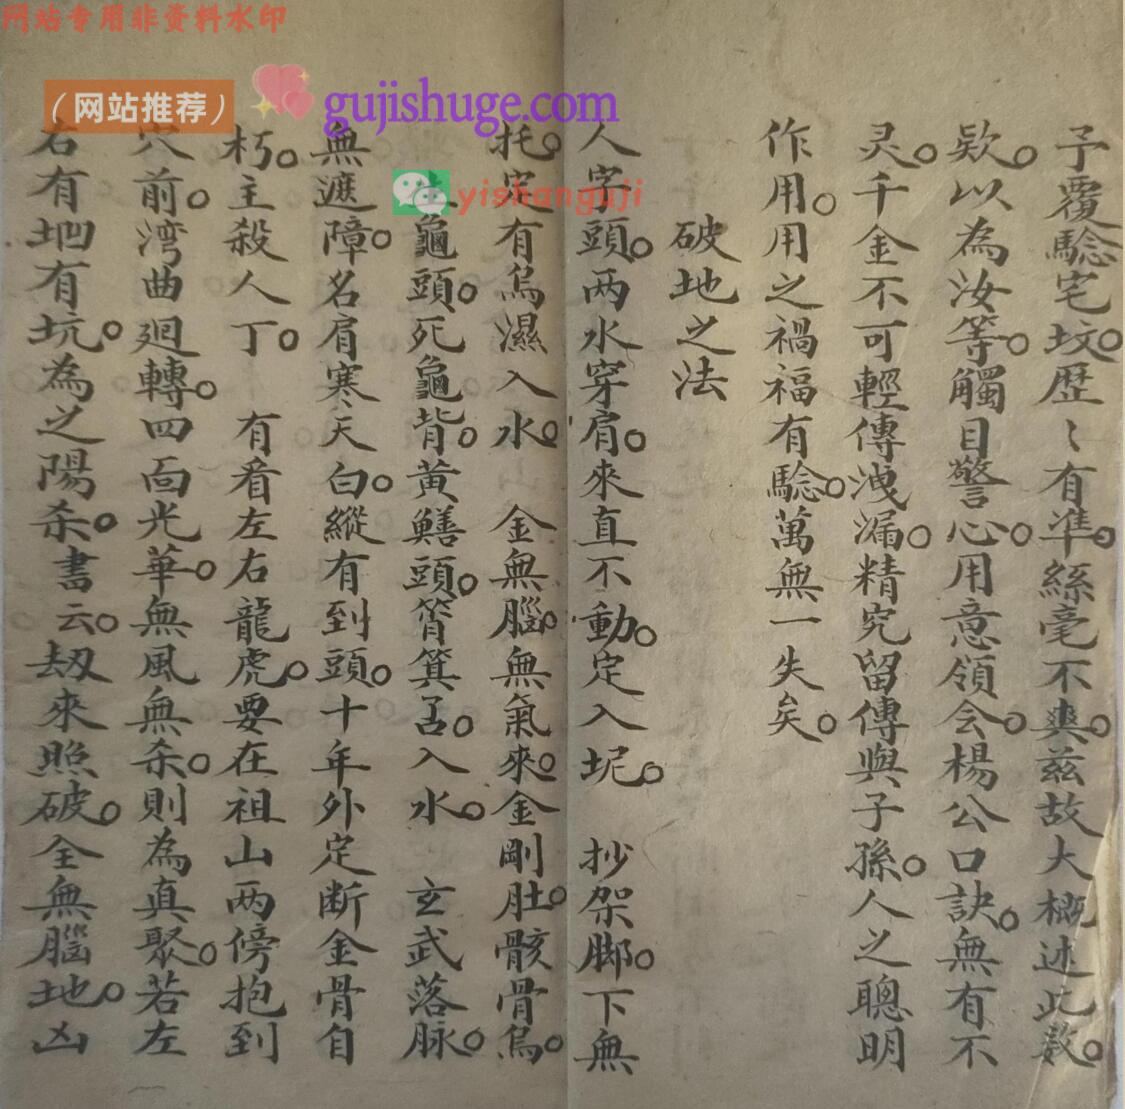 网站专用非资料水印
(网站推荐)
gujishuge.com
yishanguji
予覆驗宅坟。歷〻有準。絲毫不爽。兹故大概述此数。
欵。以為汝等。觸目警心。用意領会。楊公口訣。無有不
灵。千金不可輕傳洩漏。精究留傳與子孫。人之聰明
作用。用之禍福有驗。萬無一失矣。
破地之法
人字頭。两水穿肩。來直不動。定入坭。 抄架脚。下無
托。定有烏濕入水。 金無腦。無氣來。金剛肚。骸骨烏。
龜頭。死龜背。黄鱔頭。筲箕舌。入水。 玄武落脉。
無遮障。名肩寒天白。縱有到頭。十年外定断金骨自
朽。主殺人丁。 有看左右龍虎。要在祖山兩傍抱到
穴前。湾曲廻轉。四靣光華。無風無杀。則為真聚。若左
右有坳有坑。為之陽杀。書云。刼來照破。全無腦地。凶